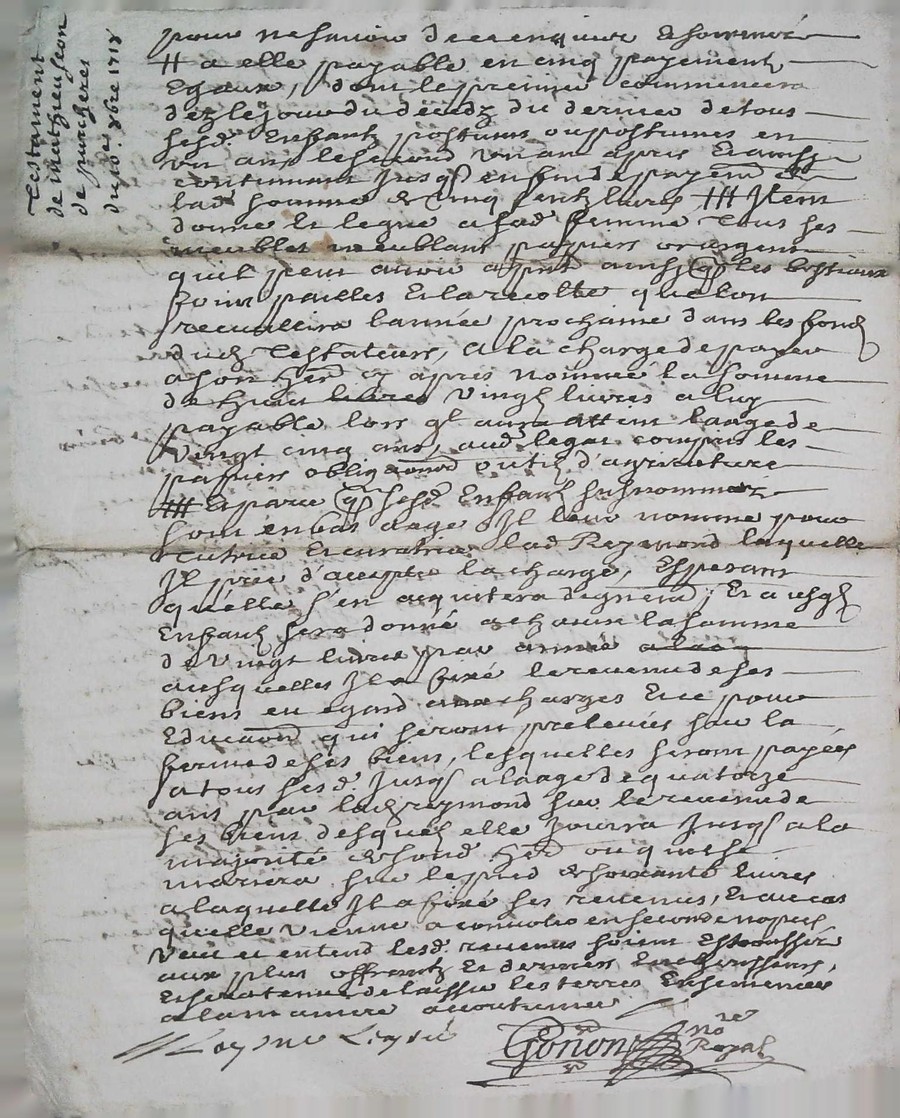 Testament
de mathieu
de jurcheres
du 10e 9bre 1718
pour ne savoir de ce enquise & sommée
# a elle payable en cinq payements
Egaux, dont le premier commencera
dez le jour du décédz du dernier de tous
sesd. Enfantz postums ou postumes en
un an, le second un an apres Et ainsy
continuant jusq' enfin de payemt de
lad. somme de cinq centz livres ### Item
donne et legue a sad. femme tous ses
meubles meublant papiers or argent
quil peut avoir a pnt ainsy q les bestiaux
foins pailles Et la recolte que lon
recueillira lannée prochaine dans les fonds
dud. Testateur, a la charge de payer
a son herr cy apres nommé la somme
de vingt livres a luy
payable lors ql aura atteint laage de
vingt cinq ans, aud. legat compris les
papiers obligaons outilz d'agriculture
### Et parce q sesd. Enfantz susnommez
sont en bas aage Il leur nomme pour
Tutrice Et curatrice lad. Reymond laquelle
Il prie d'accepter la charge, Esperant
quelle s'en acquitera dignemt, Et a sesd.
Enfantz sera donné a chacun la somme
de vingt livres par année
ausquelles Il a fixé le revenu de ses
biens eu egard aux charges Et ce pour
Education qui seront prelevées sur la
ferme de ses biens, lesquelles seront payées
a tous sesd. Jusq' a laage de quatorze
ans par lad. reymond sur le revenu de
ses biens desquels elle jouira Jusq' a la
majorité de sond. herr ou quil se
mariera sur le pied de soixante livres
a laquelle Il a fixé ses revenus, Et au cas
quelle vienne a convoler en seconde nopces
veut et entend lesd. revenus soient Estroussés
aux plus offrantz Et derniers Encherisseurs,
Et sera tenue de laisser les terres Ensemencées
a la maniere accoutumée
Gonon
no re
Royal